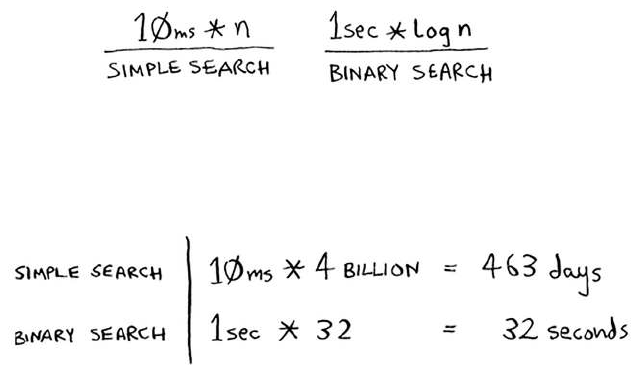 10ms * n    1sec * log n
SIMPLE SEARCH    BINARY SEARCH
SIMPLE SEARCH | 10ms * 4 BILLION = 463 days
BINARY SEARCH | 1sec * 32 = 32 seconds